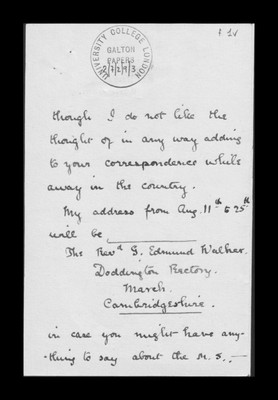 f. 1v
UNIVERSITY COLLEGE LONDON
GALTON
PAPERS
though I do not like the
thought of in any way adding
to your correspondence while
away in the country.
My address from Aug. 11th to 25th
will be
The Revd G. Edmund Walker.
Doddington Rectory.
March.
Cambridgeshire.
in case you might have any-
-thing to say about the M.S. —